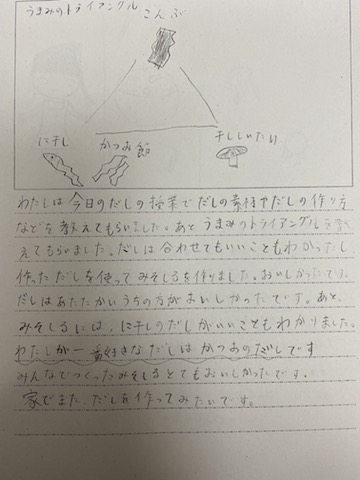 うまみのトライアングル
こんぶ
に干し
かつお節
干ししいたけ
わたしは今日のだしの授業でだしの素材やだしの作り方
などを教えてもらいました。あとうまみのトライアングルを教
えてもらいました。だしは合わせてもいいこともわかったし
作っただしを使ってみそしるを作りました。おいしかったです。
だしはあたたかいうちの方がおいしかったです。あと、
みそしるには、に干しのだしがいいこともわかりました。
わたしが一番好きなだしはかつおのだしです
みんなでつくったみそしるとてもおいしかったです。
家でまた、だしを作ってみたいです。